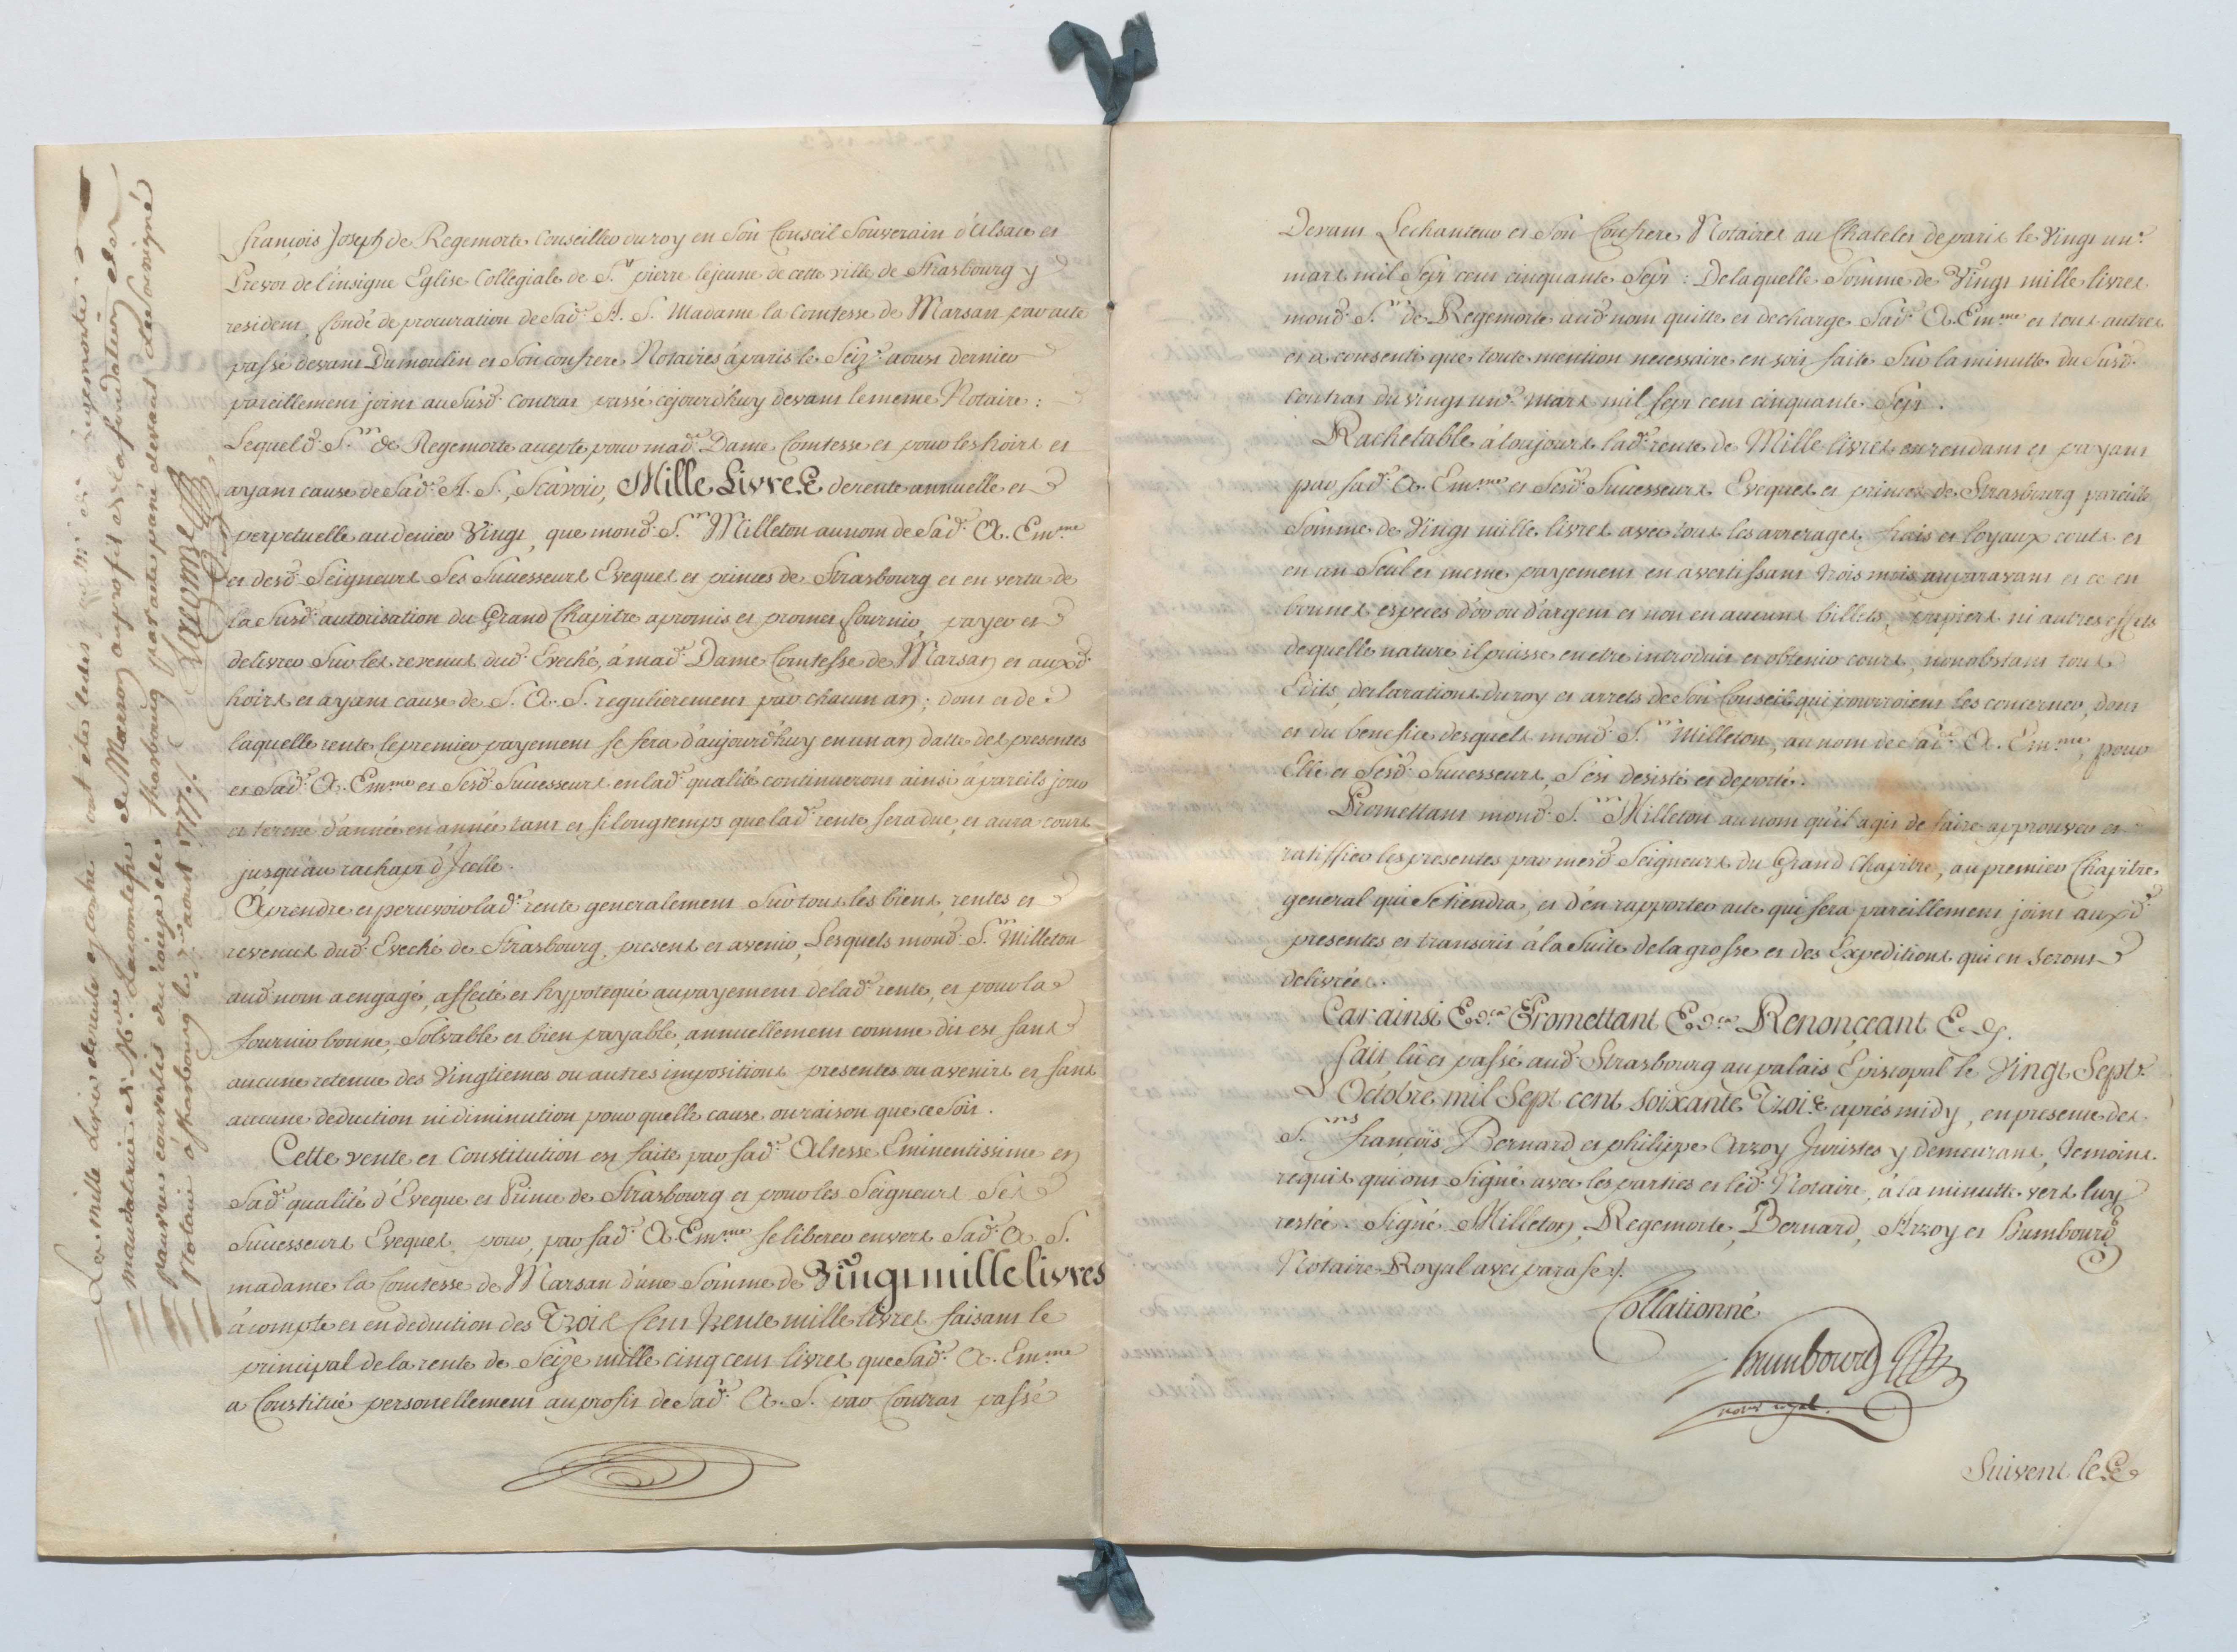 françois Joseph de Regemorte Conseiller du roy en Son Conseil Souverain d'Alsace et
Prevot de l'insigne Eglise Collegiale de St. pierre le jeune de cette ville de Strasbourg y
resident, fondé de procuration de Sad.e A. S. Madame la Comtesse de Marsan par acte
passé devant Dumoulin et Son confrere Notaires à paris le Seize aoust dernier
pareillement joint au Susd. Contrat passé cejourd'huy devant le meme Notaire :
Lequel d. Sr. de Regemorte accepte pour mad.e Dame Comtesse et pour les hoirs et
ayans cause de Sad.e A. S., Scavoir, Mille Livres de rente annuelle et
perpetuelle au denier Vingt, que mond. Sr. Milleton au nom de Sad.e A. Em.me
et desd. Seigneurs Ses Successeurs Eveques et princes de Strasbourg et en vertu de
la Susd. autorisation du Grand Chapitre a promis et promet fournir, payer et
delivrer Sur les revenus dud. Eveché, à mad.e Dame Comtesse de Marsan et auxd.
hoirs et ayans cause de S. A. S. regulierement par chacun an ; dont et de
laquelle rente le premier payement se fera d'aujourd'huy en un an datte des presentes
et Sad.e A. Em.me et Sesd. Successeurs en lad.e qualité continueront ainsi à pareils jour
et terme d'année en année tant et si longtemps que lad.e rente sera due, et aura cours
jusqu'au rachapt d'Icelle.
A prendre et percevoir lad.e rente generalement Sur tous les biens, rentes et
revenus dud. Eveché de Strasbourg, presens et avenir, Lesquels mond. Sr. Milleton
aud. nom a engagé, affecté et hypotequé au payement de lad.e rente, et pour la
fournir bonne, Solvable et bien payable, annuellement comme dit est sans
aucune retenue des Vingtiemes ou autres impositions presentes ou avenirs et sans
aucune deduction ni diminution pour quelle cause ou raison que ce Soit.
Cette vente et Constitution est faite par sad.e Altesse Eminentissime en
Sad.e qualité d'Eveque et Prince de Strasbourg et pour les Seigneurs Ses
Successeurs Eveques, pour, par sad.e A. Em.me se liberer envers Sad.e A. S.
madame la Comtesse de Marsan d'une Somme de Vingt mille livres
à compte et en deduction des Trois Cent trente mille livres faisant le
principal de la rente de Seize mille cinq cent livres que Sad.e A. Em.me
a Constitué personellement au profit de Sad.e A. S. par Contrat passé
La mille Livres de rente cy contre ont étés cedés par Mr. de Regemorte
mandataire de Mde. La comtesse de Marsan au profit de la fondation des
pauvres convertis du diocese de Strasbourg par acte passé devant le soussigné
Notaire à Strasbourg le aoust 1777.
Devant Lechanteur et Son Confrere Notaires au Chatelet de paris le Vingt un.e
mars mil Sept cent cinquante Sept : De laquelle Somme de Vingt mille livres
mond. Sr. de Regemorte aud. nom quitte et decharge Sad.e A. Em.me et tous autres
et a consenti que toute mention necessaire en soit faite Sur la minutte du Susd.
Contrat du vingt un.e mars mil sept cent cinquante Sept.
Rachetable à toujours lad.e rente de Mille livres en rendant et payant
par sad.e A. Em.me et Sesd. Successeurs Eveques et princes de Strasbourg pareille
Somme de Vingt mille livres avec tous les arrerages, frais et loyaux couts et
en un Seul et meme payement en avertissant trois mois auparavant et ce en
bonnes especes d'or ou d'argent et non en aucuns billets, papiers ni autres effets
de quelle nature il puisse en etre introduit et obtenir cours, nonobstant tous
Edits, declarations du roy et arrets de Son Conseil qui pourroient les concerner, dont
et du benefice desquels mond. Sr. Milleton, au nom de Sad.e A. Em.me, pour
Elle et Sesd. Successeurs, S'est desisté et deporté.
Promettant mond. Sr. Milleton au nom qu'il agit de faire approuver et
ratiffier les presentes par mesd. Seigneurs du Grand Chapitre, au premier Chapitre
general qui Se tiendra, et d'en rapporter acte qui sera pareillement joint auxd.
presentes et transcrit à la Suite de la grosse et des Expeditions qui en seront
delivrées.
Car ainsi E.ca Promettant E.ca Renonçeant E.ca
fait lû et passé aud. Strasbourg au palais Episcopal le Vingt Sept.e
Octobre mil Sept cent soixante Trois après midy, en presence des
Srs. françois Bernard et philippe Arroy Juristes y demeurans, temoins
requis qui ont Signé avec les parties et led. Notaire, à la minutte vers luy
restée. Signé Milleton, Regemorte, Bernard, Arroy et Humbourg
Notaire Royal avec parafe.
Collationné
Humbourg
nore. royal.
Suivent les